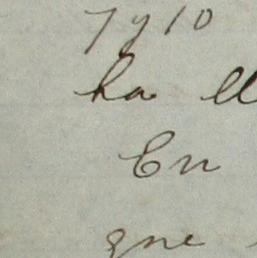 ha ll
En
que